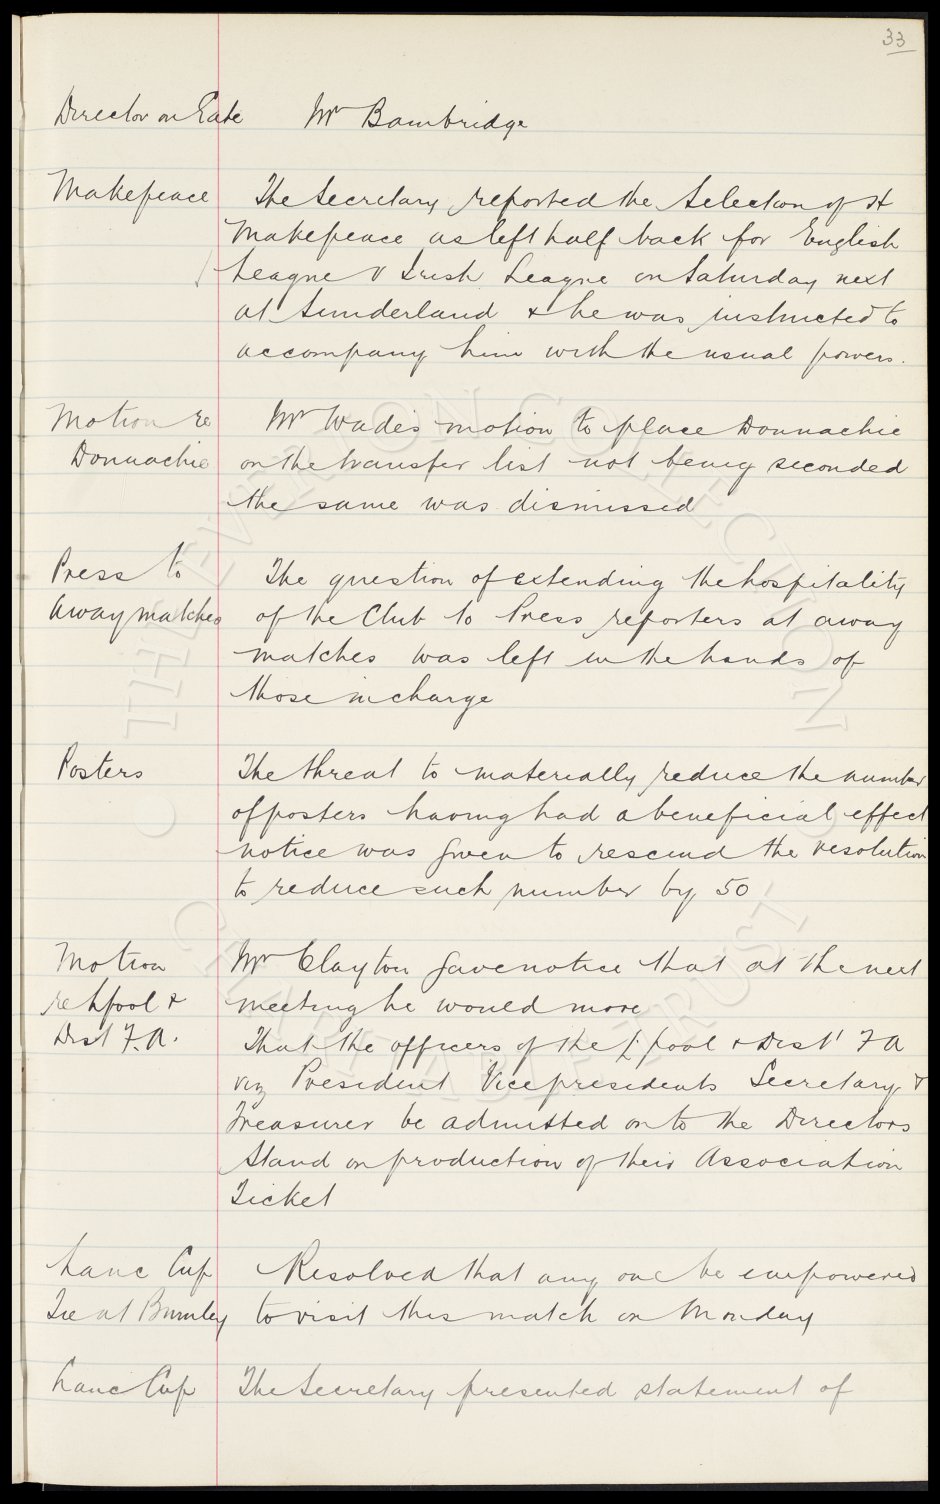 33
Director on Gate Mr Bambridge
Makepeace The Secretary reported the Selection of H
Makepeace as left half back for English
League v Irish League on Saturday next
at Sunderland & he was instructed to
accompany him with the usual powers.
Motion re Mr Wade's motion to place Donnachie
Donnachie on the transfer list not being seconded
the same was dismissed
Press to The question of extending the hospitality
Away matches of the Club to Press reporters at away
matches was left in the hands of
those in charge
Posters The threat to materially reduce the number
of posters having had a beneficial effect
notice was given to rescind the resolution
to reduce such number by 50
Motion Mr Clayton gave notice that at the next
re L'pool & meeting he would move
Dist F.A. That the officers of the L'pool & Dist F A
viz President Vice presidents Secretary &
Treasurer be admitted on to the Directors
Stand on production of their Association
Ticket
Lanc Cup Resolved that any one be empowered
Tie at Burnley to visit this match on Monday
Lanc Cup The Secretary presented statement of
THE EVERTON COLLECTION
CHARITABLE TRUST